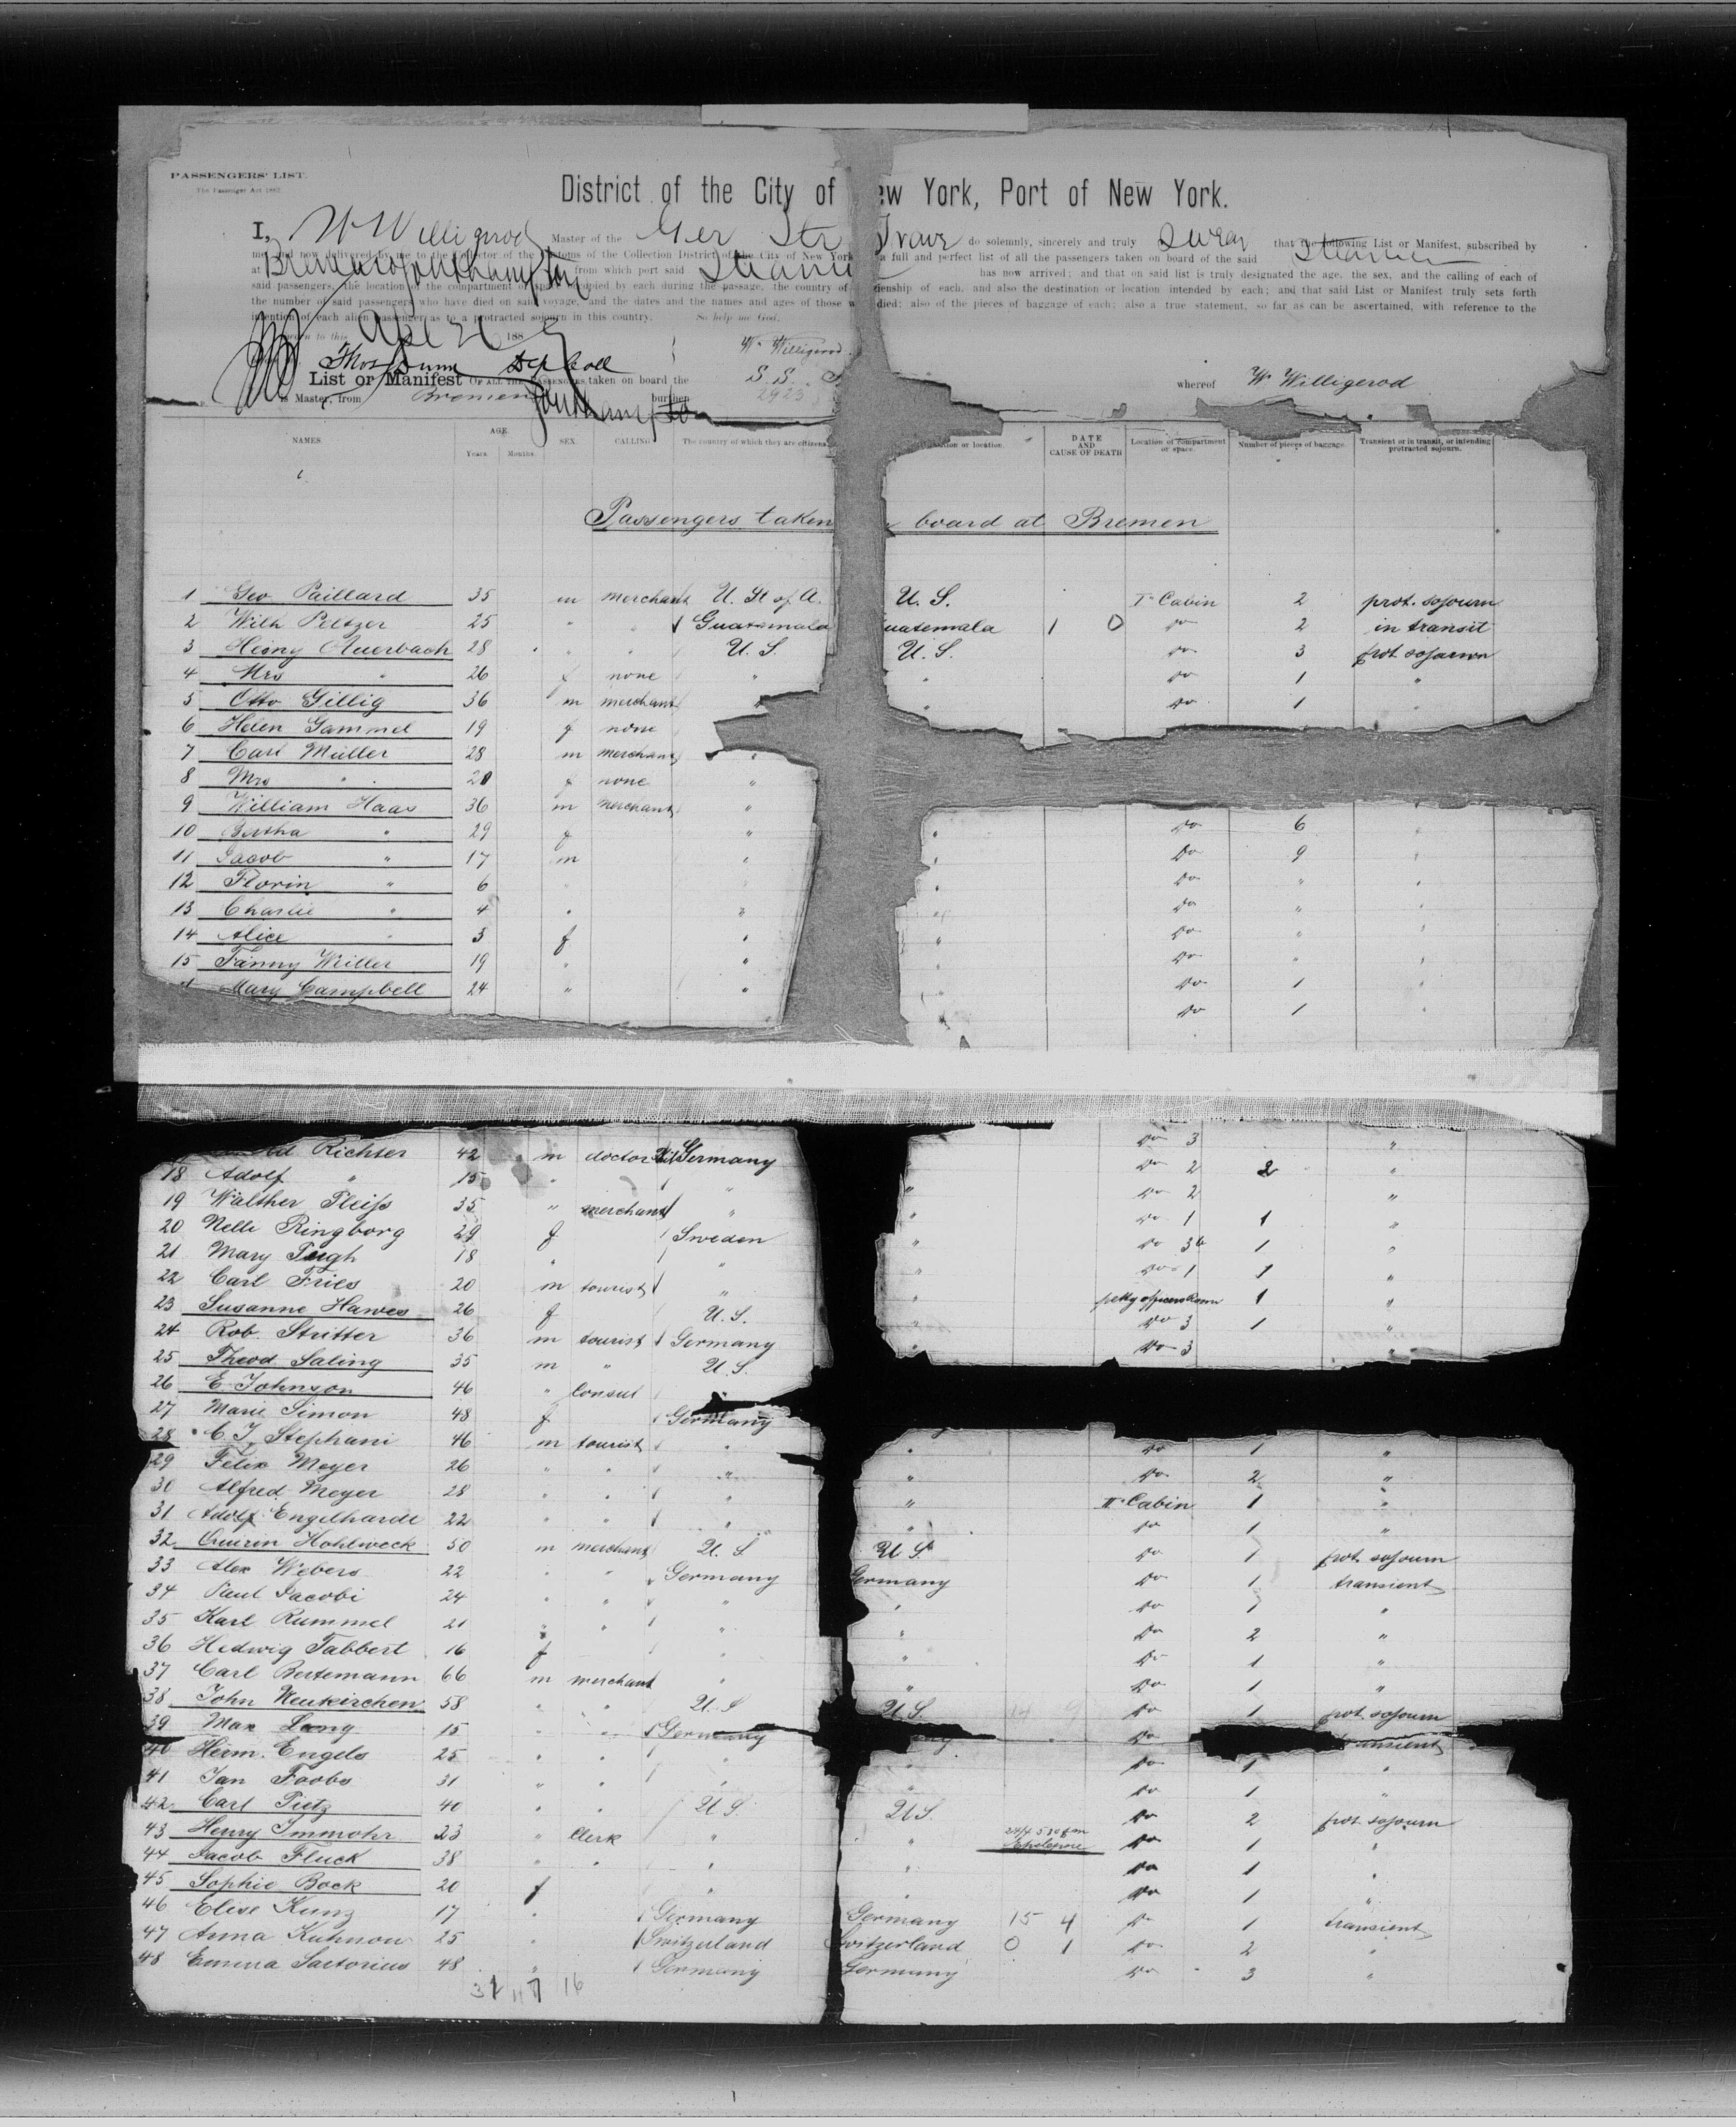 PASSENGERS' LIST.
The Passenger Act 1882.
District of the City of ew York, Port of New York.
I, W Willigerod Master of the Ger Str Trave do solemnly, sincerely and truly swear that the following List or Manifest, subscribed by
me and now delivered by me to the Collector of the Customs of the Collection District of the City of New York a full and perfect list of all the passengers taken on board of the said Steamer
at Bremen Southampton from which port said Steamer has now arrived; and that on said list is truly designated the age, the sex, and the calling of each of
said passengers, the location of the compartment or space occupied by each during the passage, the country of zenship of each, and also the destination or location intended by each; and that said List or Manifest truly sets forth
the number of said passengers who have died on said voyage, and the dates and the names and ages of those w died; also of the pieces of baggage of each; also a true statement, so far as can be ascertained, with reference to the
intention of each alien passenger as to a protracted sojourn in this country. So help me God.
Sworn to this Apl 26 188
W. Willigerod
Thos Dunn Dep Coll
List or Manifest OF ALL THE PASSENGERS taken on board the S. S. whereof W Willigerod
is Master, from Bremen Southampton burthen 2923
NAMES. AGE. Years. Months. SEX. CALLING. The country of which they are citizens. or location. DATE AND CAUSE OF DEATH Location of compartment or space. Number of pieces of baggage. Transient or in transit, or intending protracted sojourn.
Passengers taken board at Bremen
1 Geo Paillard 35 m merchant U. St of A. U. S. I Cabin 2 prot. sojourn
2 Wilh Peltzer 25 " " Guatemala uatemala 1 0 do 2 in transit
3 Heiny Auerbach 28 " " U. S U. S. do 3 prot sojourn
4 Mrs " 26 f none " " do 1 "
5 Otto Gillig 36 m merchant " " do 1 "
6 Helen Gammel 19 f none
7 Carl Müller 28 m merchant "
8 Mrs " 20 f none "
9 William Haas 36 m merchant "
10 Bertha " 29 f " " do 6 "
11 Jacob " 17 m " " do 9 "
12 Florin " 6 " " do " "
13 Charlie " 4 " " " do " "
14 Alice " 3 f " " do " "
15 Fanny Weiller 19 " " " do " "
Mary Campbell 24 " " " do 1 "
do 1 "
Richter 42 m doctor Germany do 3 "
18 Adolf " 15 " " do 2 2 "
19 Walther Pleiss 35 " merchant " " do 2 "
20 Nelli Ringborg 29 f Sweden " do 1 1 "
21 Mary Teigh 18 " " " do 36 1 "
22 Carl Fries 20 m tourist " " do 1 1 "
23 Susanne Hawes 26 f U. S. " petty officers Room 1 "
24 Rob. Stritter 36 m tourist Germany " do 3 1 "
25 Theod Saling 35 m " U. S. " do 3 "
26 E Johnson 46 " Consul
27 Marie Simon 48 f Germany
28 C. J. Stephani 46 m tourist " " do 1 "
29 Felix Meyer 26 " " " " do 2 "
30 Alfred Meyer 28 " " " " II Cabin 1 "
31 Adolf Engelhardt 22 " " " " do 1 "
32 Quirin Hohlweck 50 m merchant U. S U S. do 1 prot. sojourn
33 Alex Webers 22 " " Germany Germany do 1 transient
34 Paul Jacobi 24 " " " " do 1 "
35 Karl Rummel 21 " " " " do 2 "
36 Hedwig Tabbert 16 f " " do 1 "
37 Carl Bertemann 66 m merchant " " do 1 "
38 John Neukirchen 58 " " U. S U S. do 1 prot sojourn
39 Max Lang 15 " " Germany ny do ansient
40 Herm. Engels 25 " " " do 1 "
41 Jan Foobs 31 " " " " do 1 "
42 Carl Pietz 40 " " U S. U S. do 2 prot sojourn
43 Henry Immohr 23 " Clerk " " 24/4 5 30 pm do 1 "
44 Jacob Fluck 38 " " " " do 1 "
45 Sophie Bock 20 f " " do 1 "
46 Elise Kunz 17 " Germany Germany 15 4 do 1 transient
47 Anna Kuhnow 25 " Switzerland witzerland 0 1 do 2 "
48 Emma Sartorius 48 " Germany Germany do 3 "
16